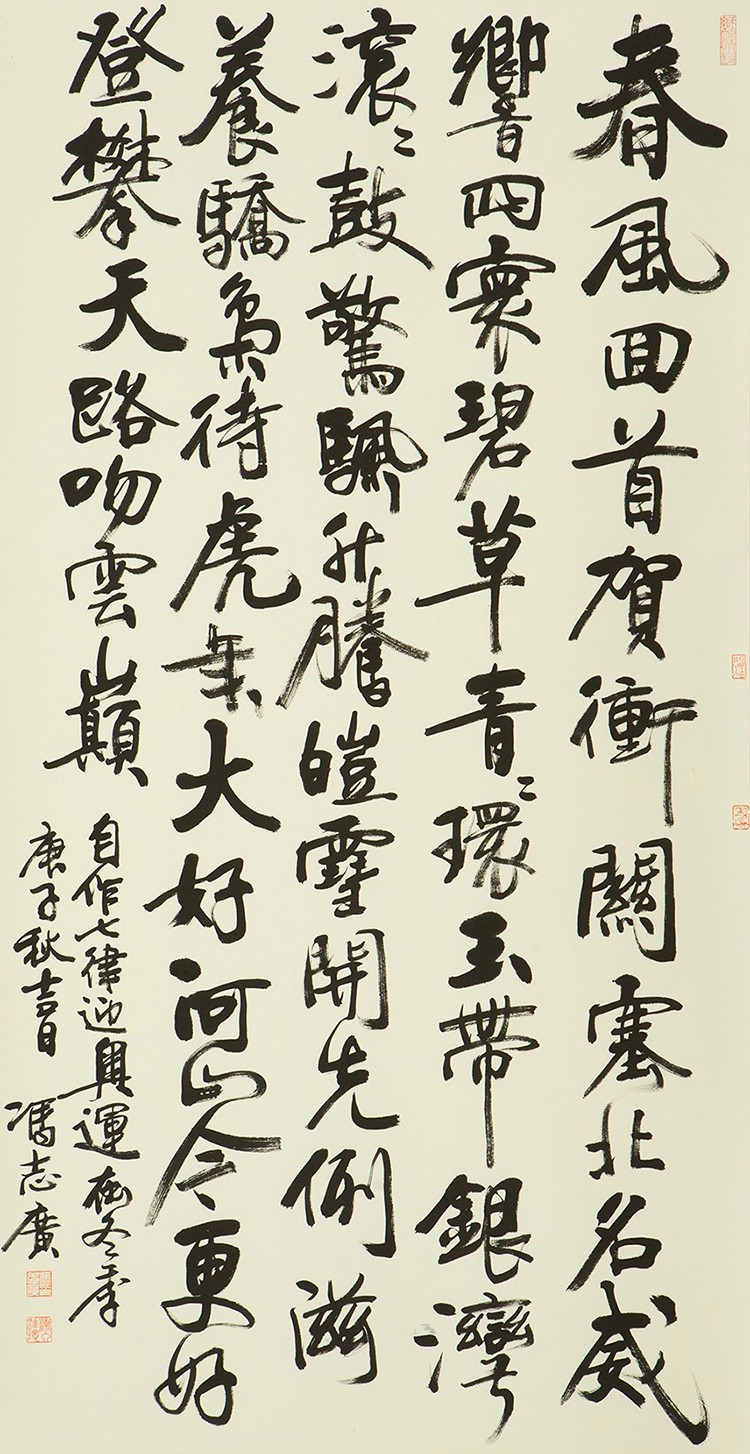 春風回首賀衝關塞北名威
響四寰碧草青〻環玉帶銀灣
滾〻鼓驚颿升騰皚雪開先例滋
養驕梟待虎年大好河山今更好
登攀天路吻雲巔
自作七律迎奧運在冬季
庚子秋吉日 馮志廣